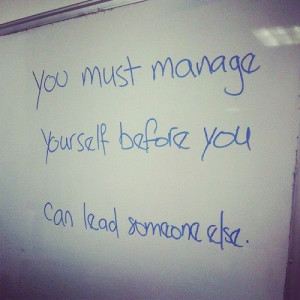 you must manage
yourself before you
can lead someone else.